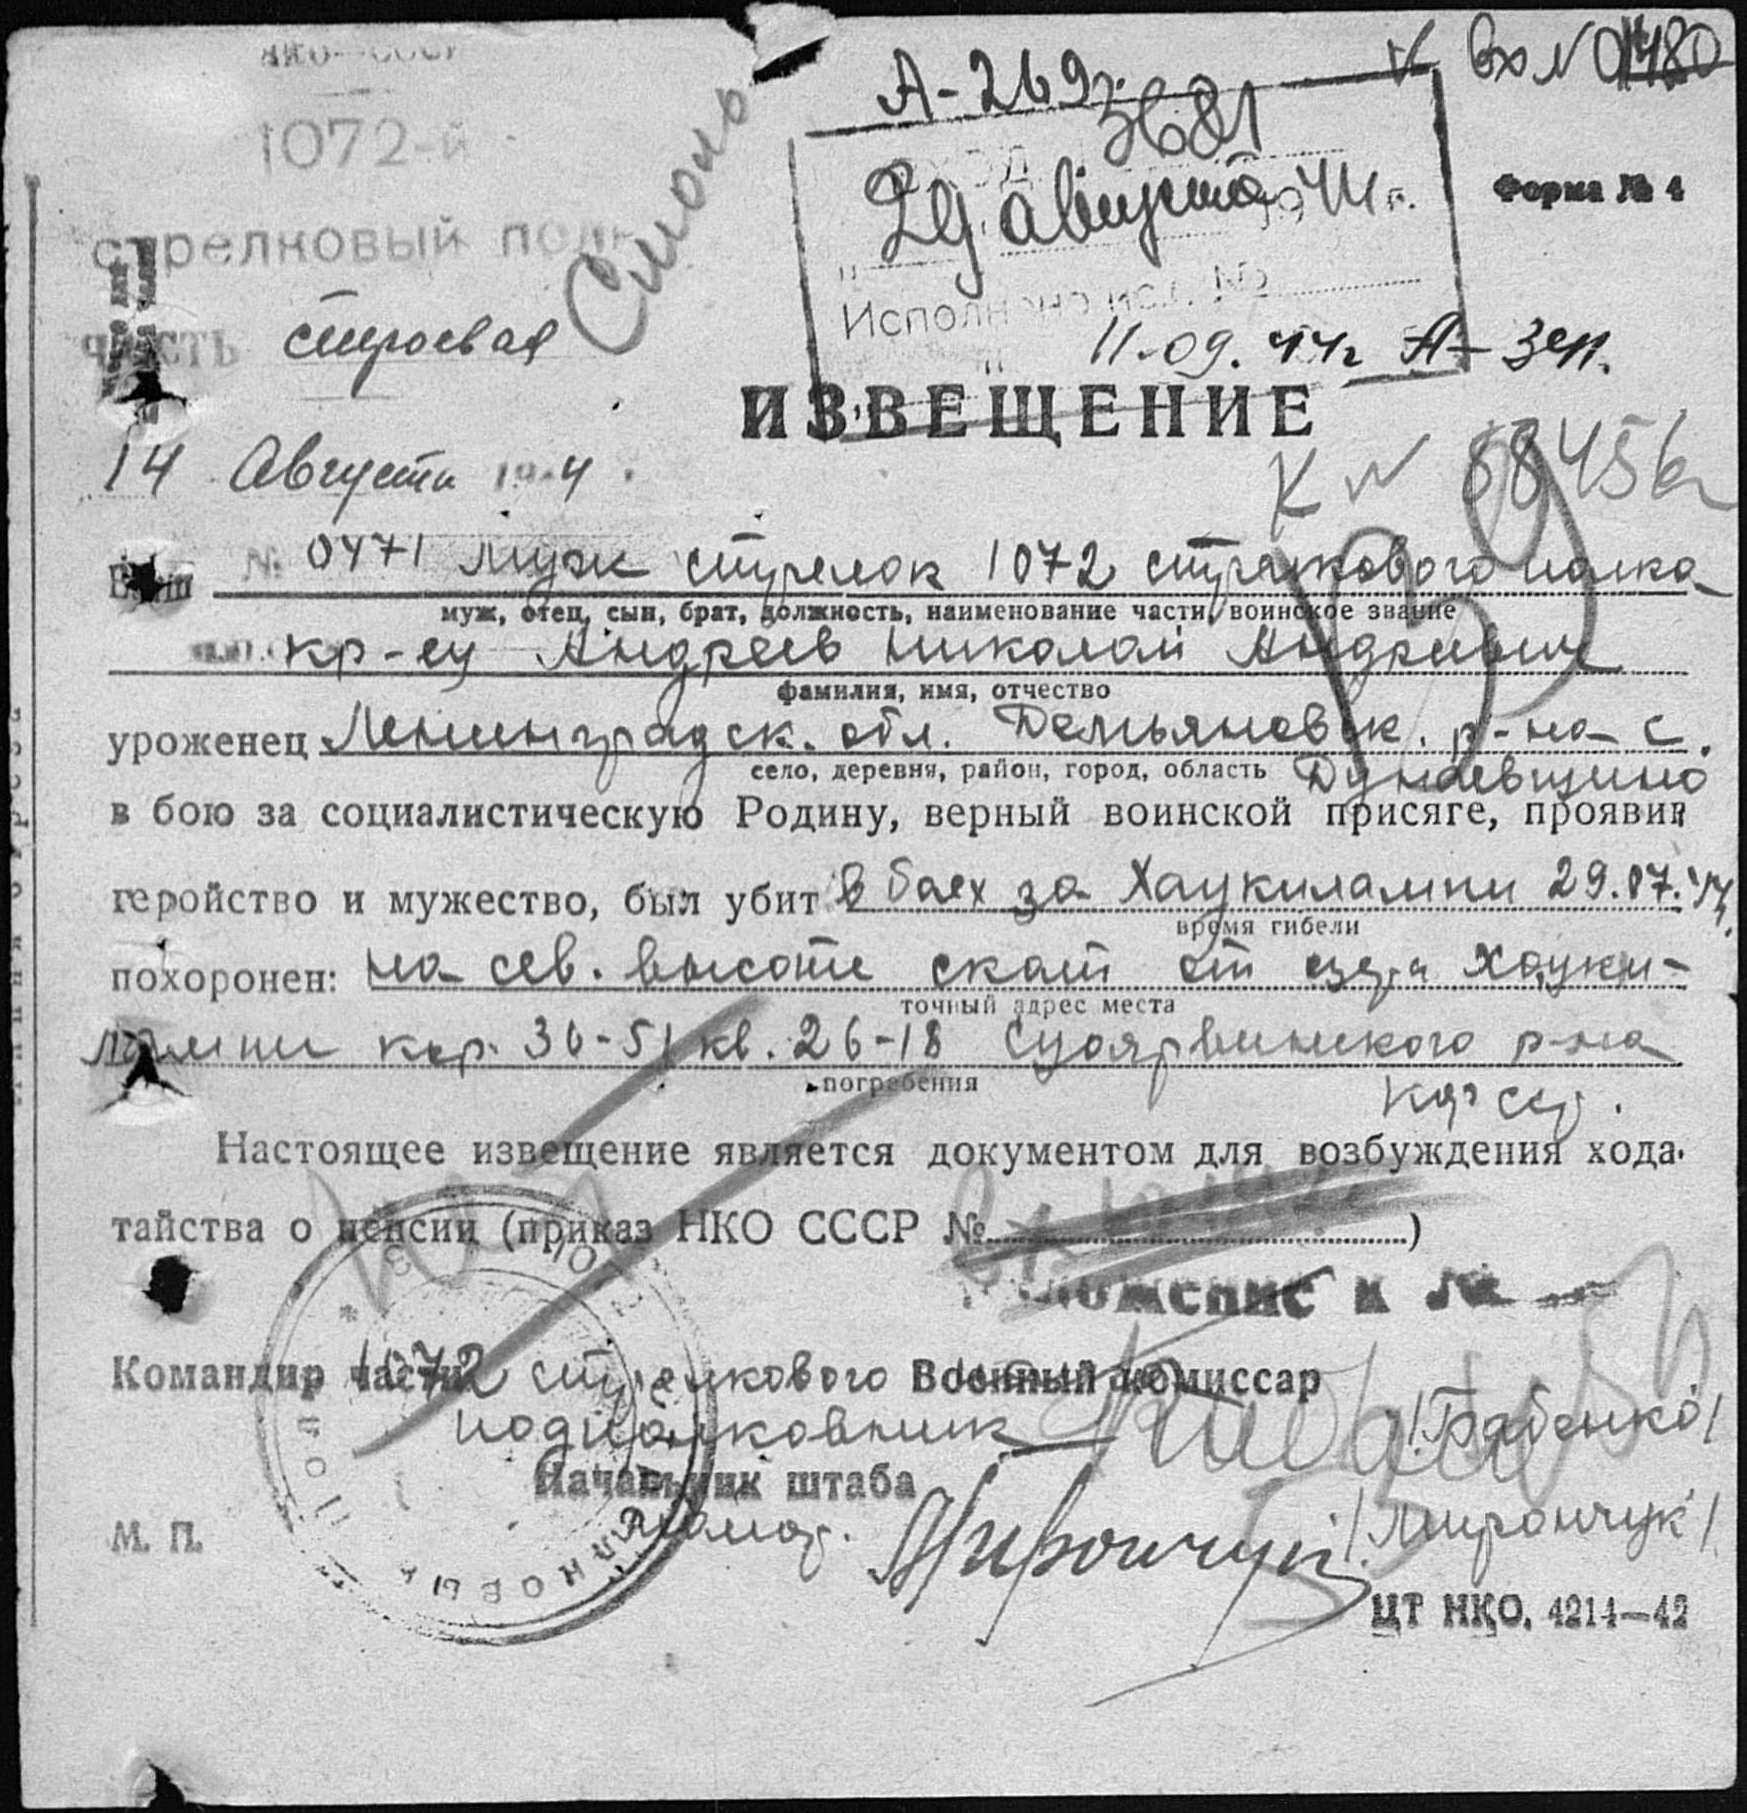 НКО СССР
1072-й
стрелковый полк
ЧАСТЬ строевая
А-269г.
Вх N 01480
3681
29 августа 1944 г.
Форма № 4
Исполнено исх. №
11.09.44г А- Зен.
ИЗВЕЩЕНИЕ
14 Августа 1944
К N 88456
39
№ 0471
Ваш муж стрелок 1072 стрелкового полка
муж, отец, сын, брат, должность, наименование части, воинское звание
кр-ец Андреев Николай Андреевич
фамилия, имя, отчество
уроженец Ленинградск. обл. Демьяновск. р-на с.
село, деревня, район, город, область Дунаевщино
в бою за социалистическую Родину, верный воинской присяге, проявив
геройство и мужество, был убит в боях за Хаукилампи 29.07.44.
время гибели
похоронен: на сев. высоте скат от озера Хауки-
точный адрес места
лампи кор. 36-51 кв. 26-18 Суоярвинского р-на
погребения
КФССР.
Настоящее извещение является документом для возбуждения хода-
тайства о пенсии (приказ НКО СССР № )
Командир части 1072 стрелкового Военный комиссар
подполковник /Бабенко/
Начальник штаба
майор. Мирончук /Мирончук/
М. П.
ЦТ НКО. 4214—42